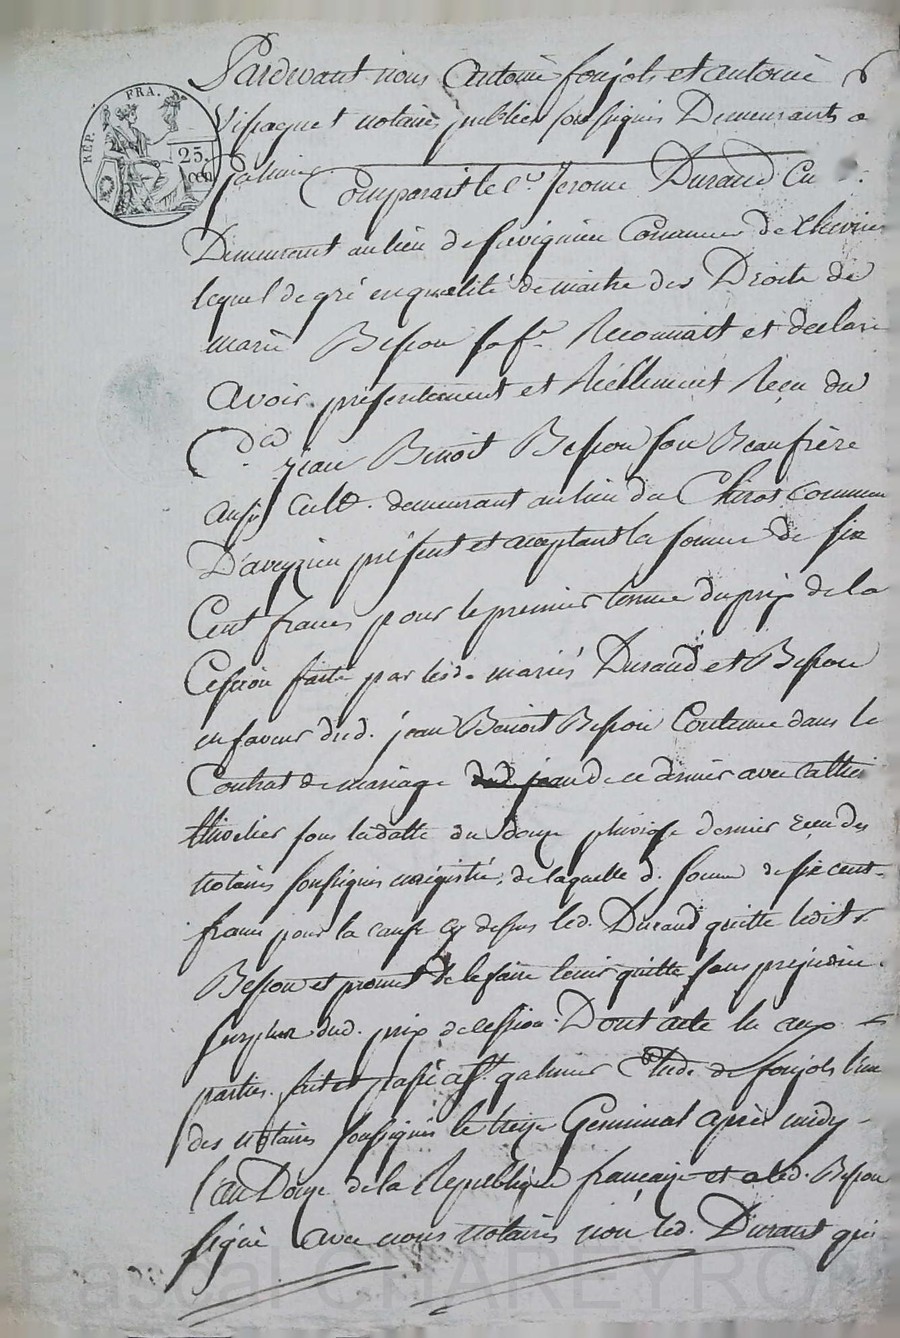 REP. FRA.
25.
cen
Pardevant nous Antoine foujols et antoine
Vissaguet notaires publics soussignés Demeurants a
St galmier
Comparait le Cn. Jerome Durand Cu
Demeurant au lieu de Commune de
lequel de gré en qualité de maitre des Droits de
marie Besson sa fe. Reconnait et declare
avoir présentement et Réellement Reçu du
Cn. Jean Benoit Besson son Beaufrère
aussi Cult. demeurant au lieu du Chirat Commune
D'aveyzieu présent et acceptant la somme de six
Cent francs pour le premier terme du prix de la
Cession faite par lesd. mariés Durand et Besson
en faveur dud. jean Benoit Besson Contenue dans le
Contrat de mariage de ce dernier avec
sous la datte du douze pluviose dernier reçu des
notaires soussignés enrégistré, de laquelle d. somme de six cent
francs pour la cause cy dessus led. Durand quitte ledit
Besson et promet de le faire tenir quitte sans préjudice
surplus dud. prix de cession. Dont acte lu aux
parties. fait et passé a St. galmier Etude de foujols l'un
des notaires soussignés le treize Germinal après midy
l'an Douze de la Republique française et a led. Besson
signé avec nous notaires non led. Durant qui
Pascal CHAREYRON